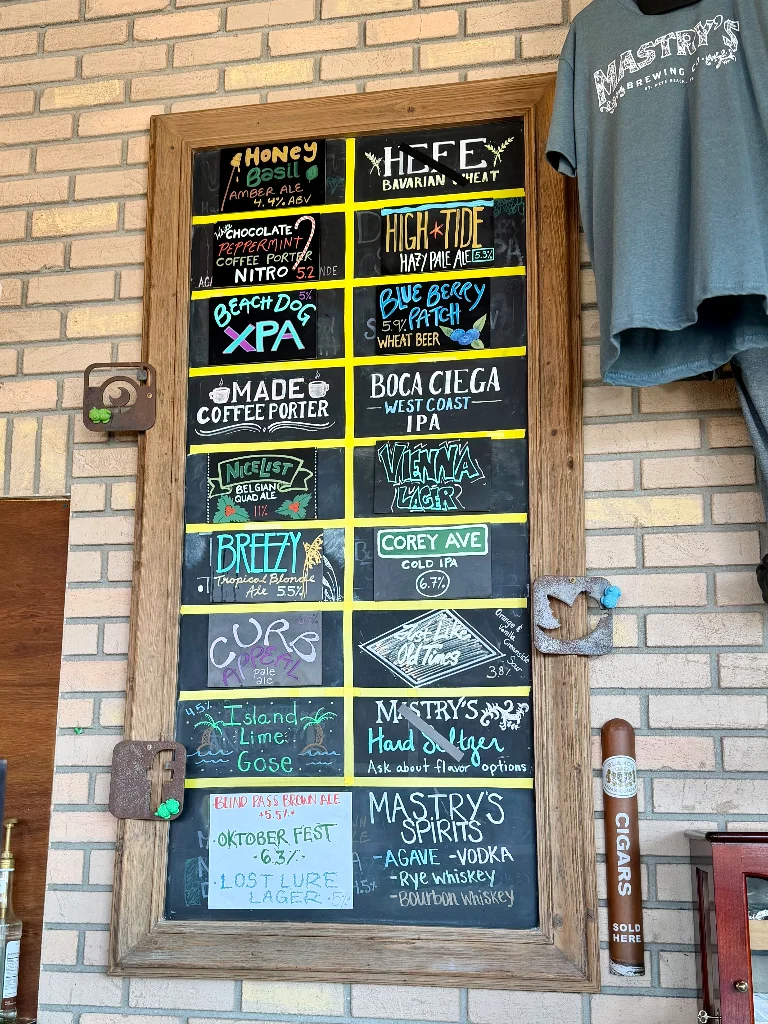 HONEY
Basil
AMBER ALE
4.4% ABV
HEFE
BAVARIAN WHEAT
CHOCOLATE
PEPPERMINT
COFFEE PORTER
NITRO 5.2
HIGH TIDE
HAZY PALE ALE 5.3%
5%
BEACH DOG
XPA
BLUE BERRY
5.9% PATCH
WHEAT BEER
MADE
COFFEE PORTER
BOCA CIEGA
WEST COAST
IPA
NICE LIST
BELGIAN
QUAD ALE
11%
VIENNA
LAGER
BREEZY
Tropical Blonde
Ale 5.5%
COREY AVE
COLD IPA
6.7%
CURB
APPEAL
pale
ale
Just Like
Old Times
Orange &
Vanilla
Creamsicle
Sour
3.8%
4.5%
Island
Lime
Gose
MASTRY'S
Hard Seltzer
Ask about flavor options
BLIND PASS BROWN ALE
5.5%
OKTOBER FEST
6.3%
LOST LURE
LAGER 5%
MASTRY'S
SPIRITS
-AGAVE -VODKA
-Rye Whiskey
-Bourbon Whiskey
MASTRY'S
BREWING CO.
ST. PETE BEACH, FL
CIGARS
SOLD
HERE